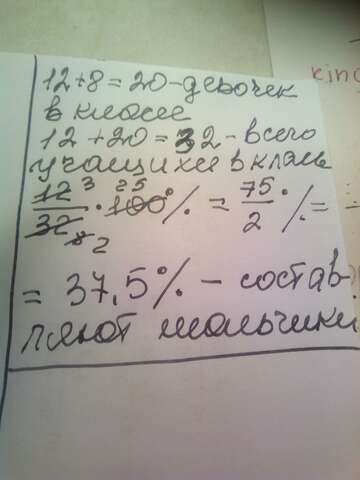 12+8=20-девочек
в классе
12+20=32-всего
учащихся в классе
12 3 25
32 8 2 · 100% = 75/2 % =
= 37,5% - состав-
ляют мальчики
king